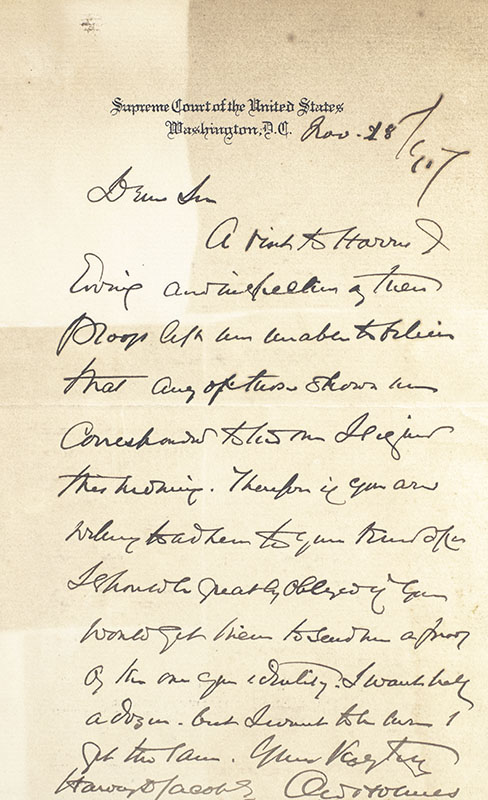 Supreme Court of the United States
Washington, D.C. Nov. 28 / 07
Dear Sir
A visit to Harris &
Ewing and inspection of their
proofs left me unable to believe
that any of those shown me
corresponded to the one I signed
this morning. Therefore if you are
willing to adhere to your kind offer
I should be greatly obliged if you
would get them to send me a proof
of the one you identify. I want only
a dozen - but I want to be sure I
get the same. Yours very truly
Harvey D Jacob OW Holmes